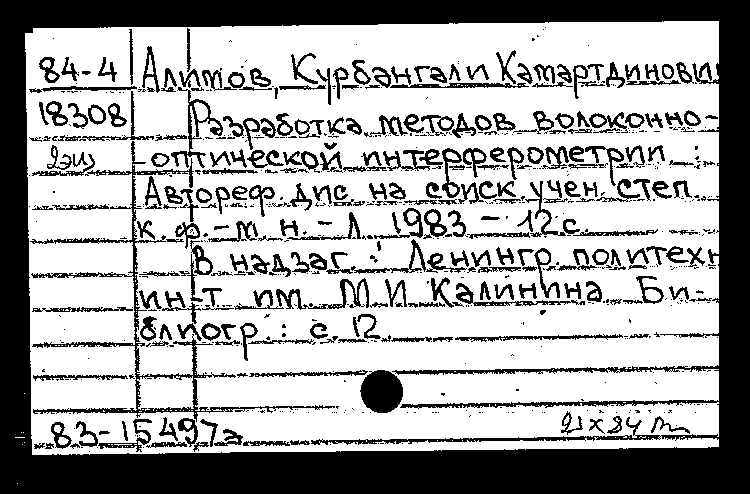 84-4 Алимов, Курбангали Камартдинович
18308 Разработка методов волоконно-
2 экз -оптической интерферометрии :
Автореф. дис. на соиск. учен. степ.
к. ф.-м. н. - Л. 1983 - 12 с.
В надзаг.: Ленингр. политехн.
ин-т им. М. И. Калинина. Би-
блиогр.: с. 12.
83-15497а